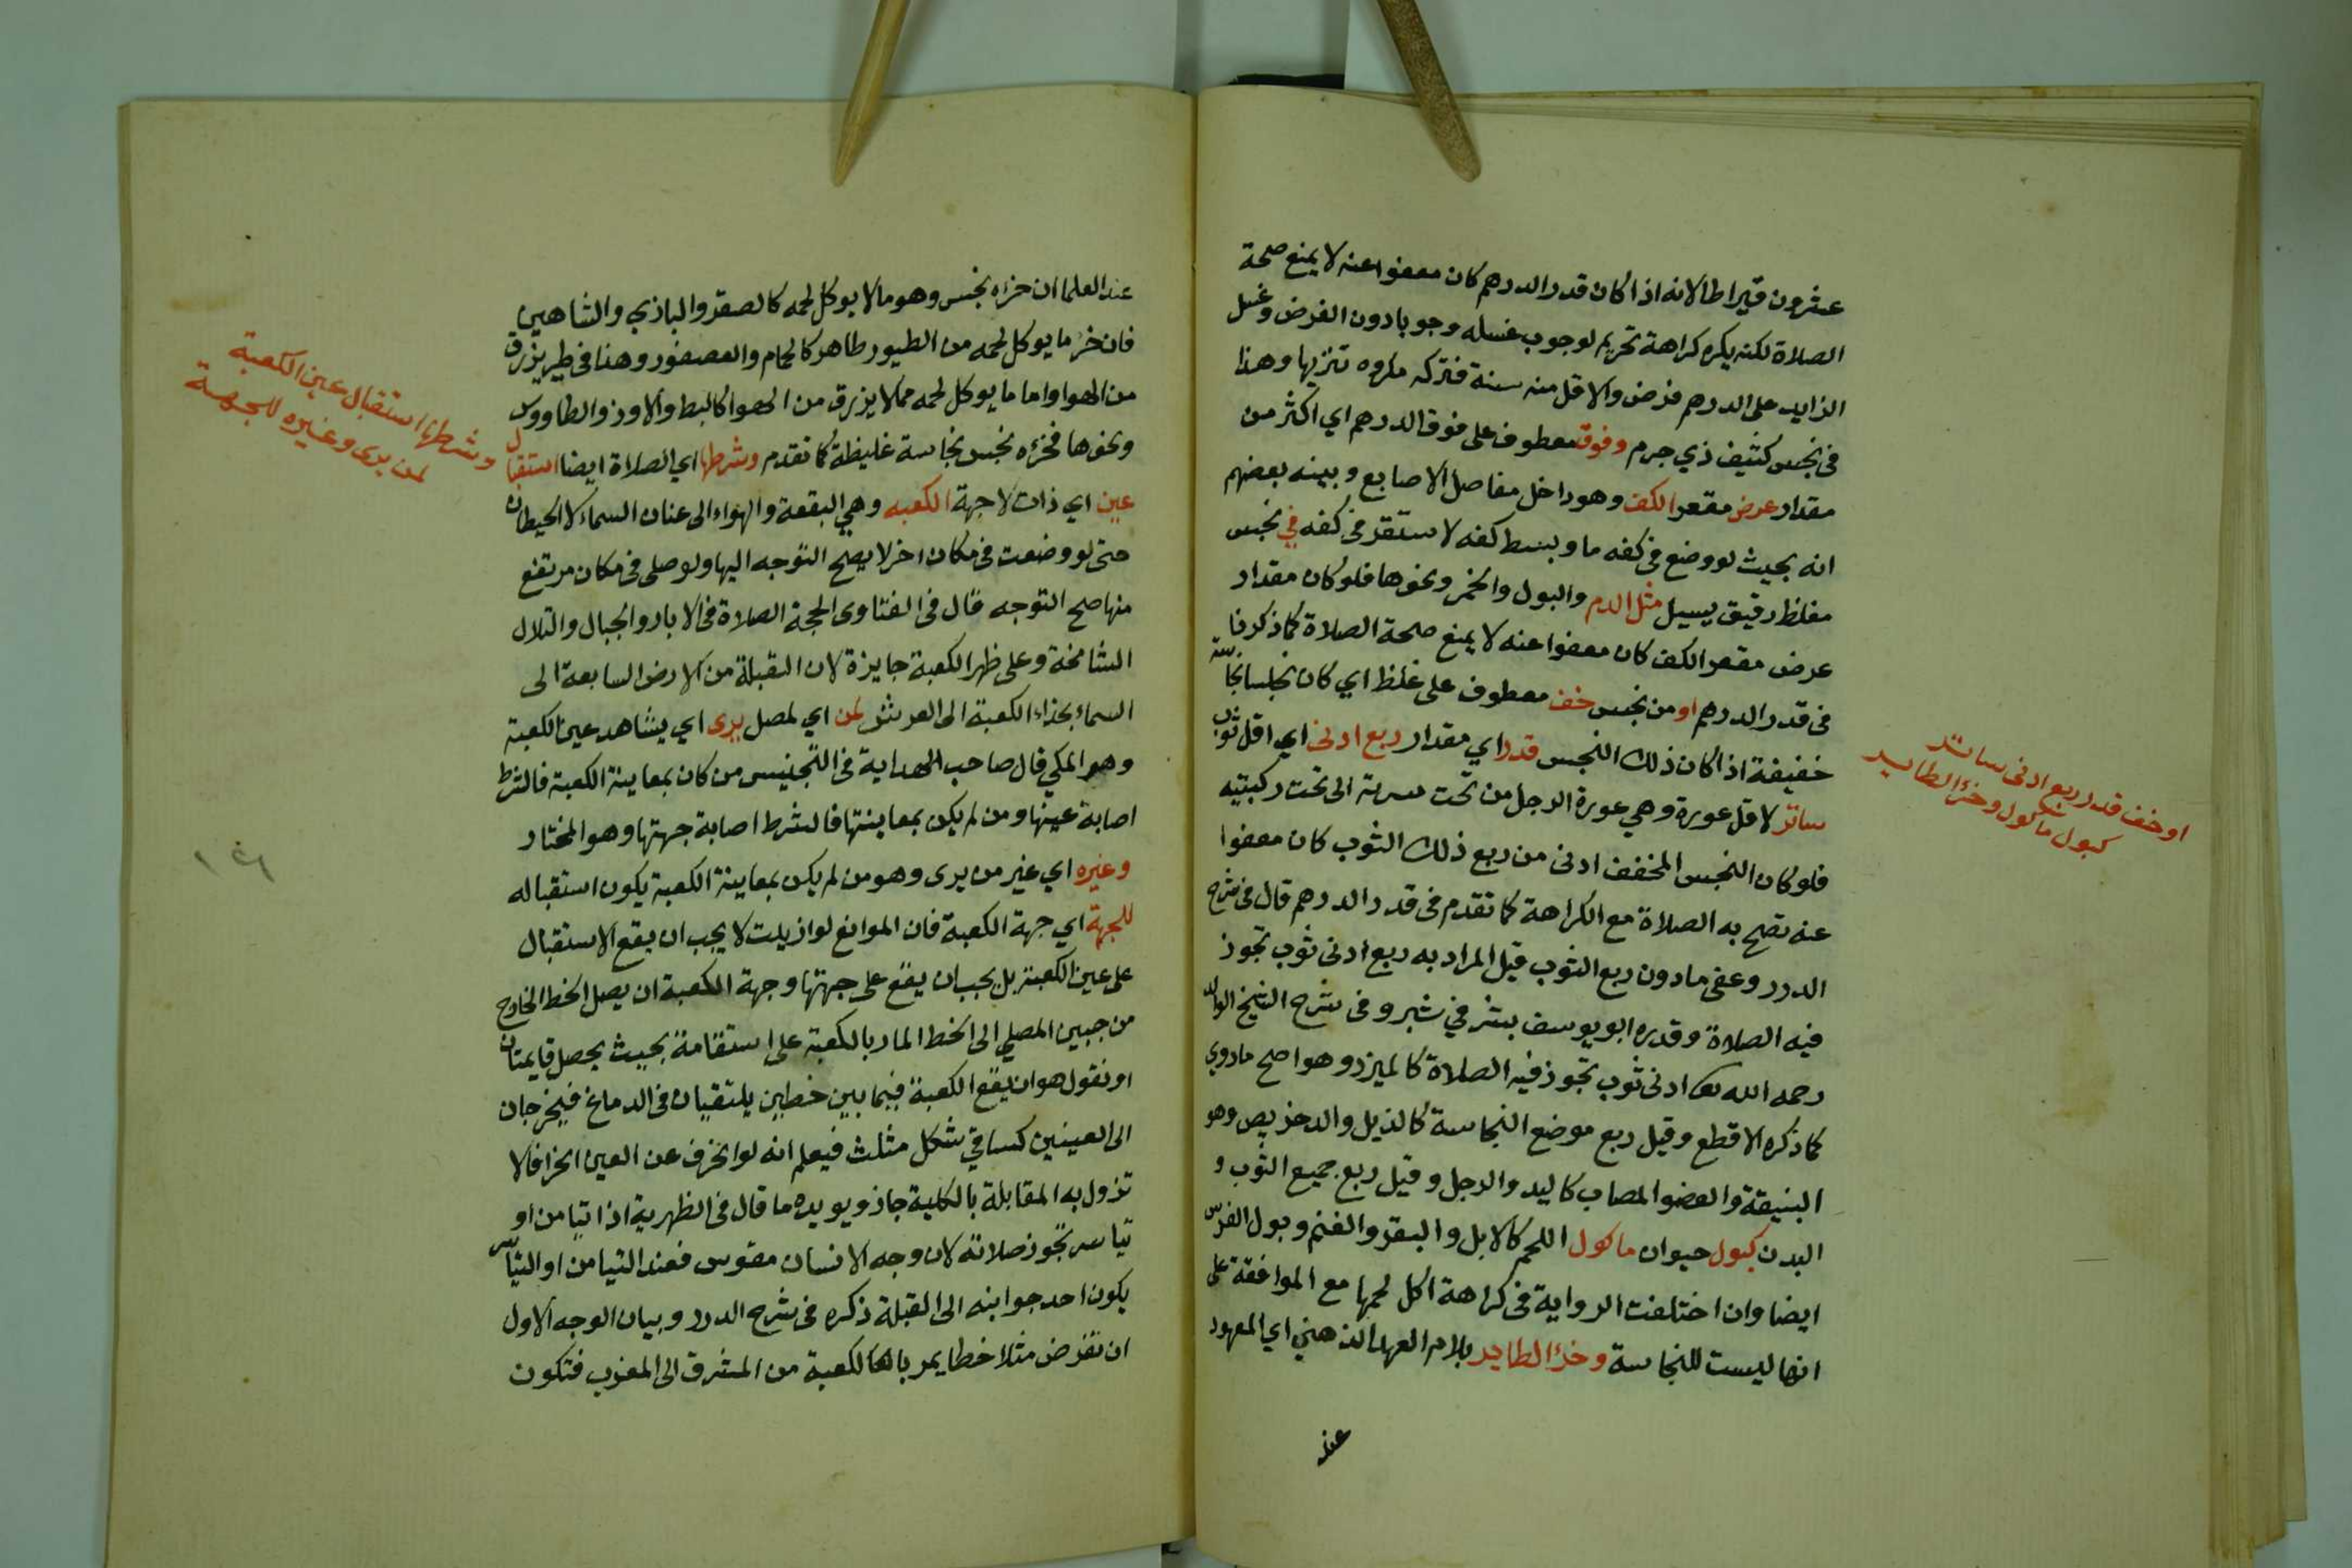 عشرون قيراطا لانه اذا كان قدر الدرهم كان معفوا عنه لا يمنع صحة
الصلاة لكنه يكره كراهة تحريم لوجوب غسله وجوبا دون الفرض وغسل
الزايد على الدرهم فرض والاقل منه سنة فتركه مكروه تنزيها وهذا
فى نجس كثيف ذي جرم وفوق معطوف على فوق الدرهم اي اكثر من
مقدار عرض مقعر الكف وهو داخل مفاصل الاصابع وبينه بعضهم
انه بحيث لو وضع فى كفه ما وبسط كفه لاستقر فى كفه في نجس
مغلظ رقيق يسيل مثل الدم والبول والخمر ونحوها فلو كان مقدار
عرض مقعر الكف كان معفوا عنه لا يمنع صحة الصلاة كما ذكرنا
فى قدر الدرهم او من نجس خف معطوف على غلظ اي كان نجسا نجاسة
خفيفة اذا كان ذلك النجس قدر اي مقدار ربع ادنى اي اقل ثوب
ساتر لاقل عورة وهي عورة الرجل من تحت سرته الى تحت ركبتيه
فلو كان النجس المخفف ادنى من ربع ذلك الثوب كان معفوا
عنه تصح به الصلاة مع الكراهة كما تقدم فى قدر الدرهم قال فى شرح
الدرر وعفى ما دون ربع الثوب قيل المراد به ربع ادنى ثوب تجوز
فيه الصلاة وقدره ابو يوسف بشر في شبر وفى شرح الشيخ الوالد
رحمه الله تعا ادنى ثوب تجوز فيه الصلاة كالميزر وهو اصح ما روي
كما ذكره الاقطع وقيل ربع موضع النجاسة كالذيل والدخريص وهو
البنيقة والعضو المصاب كاليد والرجل وقيل ربع جميع الثوب و
البدن كبول حيوان ماكول اللحم كالابل والبقر والغنم وبول الفرس
ايضا وان اختلفت الرواية فى كراهة اكل لحمها مع الموافقة على
انها ليست للنجاسة وخرٔ الطاير بلام العهد الذهني اي المعهود
عند
او خف قدر ربع ادنى ساتر
كبول ماكول وخرٔ الطاير
عند العلما ان خرٔه نجس وهو ما لا يوكل لحمه كالصقر والبازي والشاهين
فان خرٔ ما يوكل لحمه من الطيور طاهر كالحمام والعصفور وهذا فى طير يزرق
من الهوا واما ما يوكل لحمه مما لا يزرق من الهوا كالبط والاوز والطاووس
ونحوها فخرٔه نجس نجاسة غليظة كما تقدم وشرطها اي الصلاة ايضا استقبال
عين اي ذات لا جهة الكعبه وهي البقعة والهواء الى عنان السماء لا الحيطان
حتى لو وضعت فى مكان اخر لا يصح التوجه اليها ولو صلى فى مكان مرتفع
منها صح التوجه قال فى الفتاوى الحجة الصلاة فى الابار والجبال والتلال
الشامخة وعلى ظهر الكعبة جايزة لان القبلة من الارض السابعة الى
السماء بحذاء الكعبة الى العرش لمن اي لمصل يرى اي يشاهد عين الكعبة
وهو المكي قال صاحب الهداية فى التجنيس من كان بمعاينة الكعبة فالشرط
اصابة عينها ومن لم يكن بمعاينتها فالشرط اصابة جهتها وهو المختار
وغيره اي غير من يرى وهو من لم يكن بمعاينة الكعبة يكون استقباله
للجهة اي جهة الكعبة فان الموانع لو ازيلت لا يجب ان يقع الاستقبال
على عين الكعبة بل يجب ان يقع على جهتها وجهة الكعبة ان يصل الخط الخارج
من جبين المصلي الى الخط المار بالكعبة على استقامة بحيث يحصل قايمتان
او نقول هو ان تقع الكعبة فيما بين خطين يلتقيان فى الدماغ فيخرجان
الى العينين كساقي شكل مثلث فيعلم انه لو انحرف عن العين انحرافا لا
تزول به المقابلة بالكلية جاز ويويده ما قال فى الظهرية اذا تيامن او
تياسر تجوز صلاته لان وجه الانسان مقوس فعند التيامن او التياسر
يكون احد جوانبه الى القبلة ذكره فى شرح الدرر وبيان الوجه الاول
ان نفرض مثلا خطا يمر بالكعبة من المشرق الى المغرب فتكون
وشرطها استقبال عين الكعبة
لمن يرى وغيره للجهة